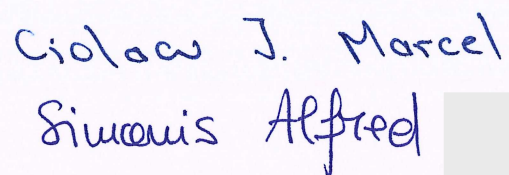 Ciolacu I. Marcel
Simonis Alfred